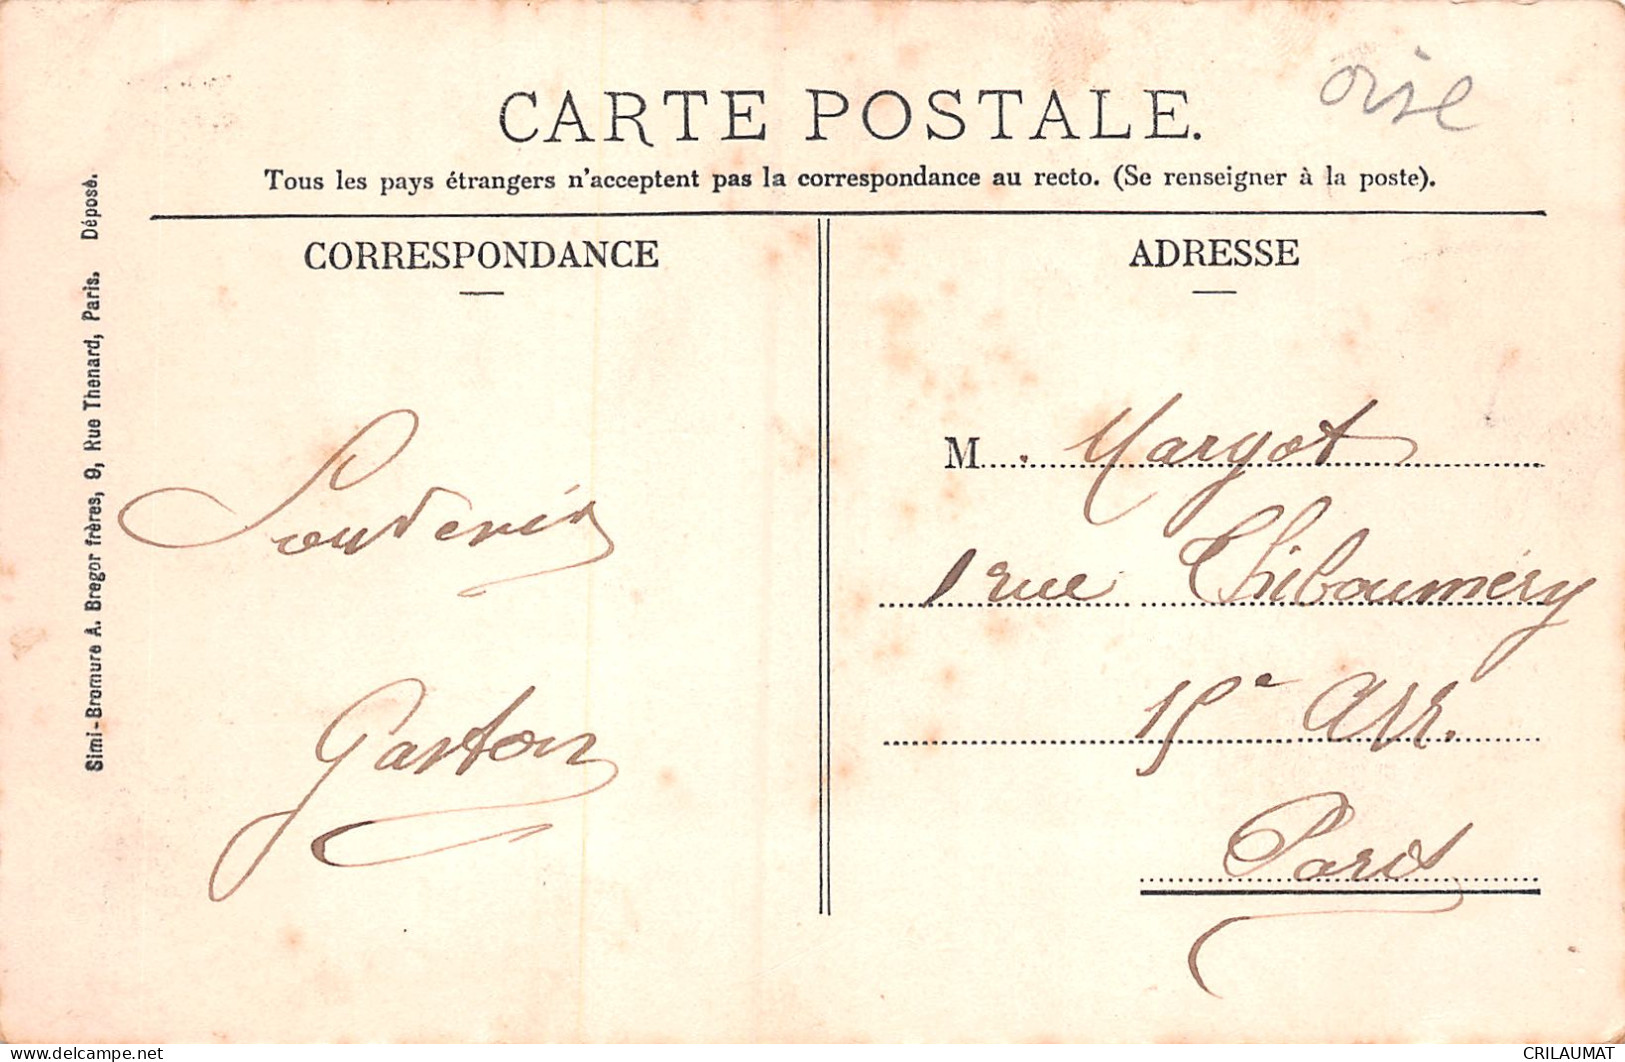 oise
CARTE POSTALE.
Tous les pays étrangers n'acceptent pas la correspondance au recto. (Se renseigner à la poste).
CORRESPONDANCE
Souvenir
Gaston
ADRESSE
M. Margot
1 rue Thiboumery
15e Arr.
Paris
Simi-Bromure A. Bregor frères, 9, Rue Thenard, Paris. Déposé.
delcampe.net
CRILAUMAT